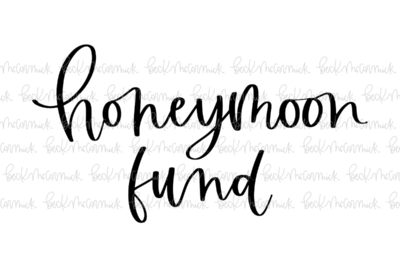 honeymoon
fund